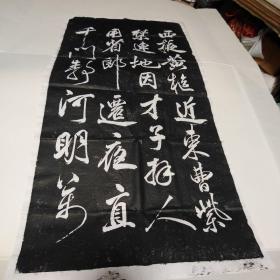 西掖黄樞近東曹紫
禁連地因才子拜人
用省郎遷夜直
千門靜河明萬